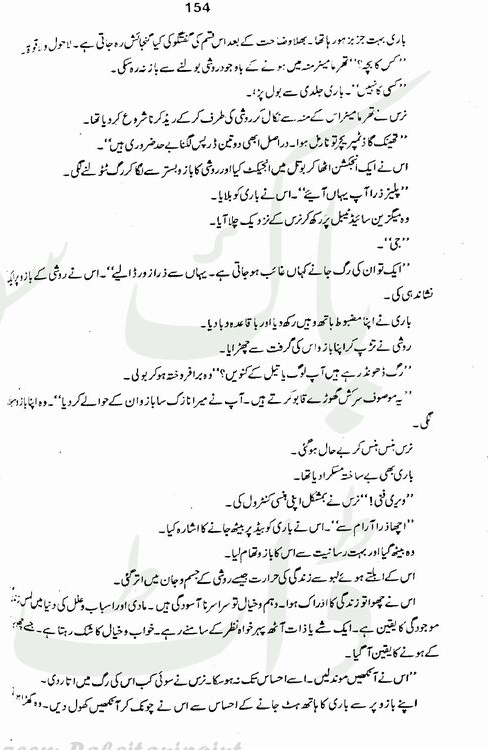 154
باری بہت جزبز ہو رہا تھا۔ بھلا وضاحت کے بعد اس قسم کی گفتگو کی کیا گنجائش رہ جاتی ہے۔ لاحول و قوۃ۔
’’کس کا بچہ؟‘‘ تھرمامیٹر منہ میں ہونے کے باوجود روشی بولنے سے باز نہ رہ سکی۔
’’کسی کا نہیں‘‘۔ باری جلدی سے بول پڑا۔
نرس نے تھرمامیٹر اس کے منہ سے نکال کر روشی کی طرف کر کے ریڈ کرنا شروع کر دیا تھا۔
’’تھینک گاڈ ٹمپریچر تو نارمل ہوا۔ دراصل ابھی دو تین ڈرپس لگنا بے حد ضروری ہیں‘‘۔
اس نے ایک انجکشن اٹھا کر بوتل میں انجیکٹ کیا اور روشی کا بازو بستر سے لگا کر رگ ٹٹولنے لگی۔
’’پلیز ذرا آپ یہاں آیئے‘‘۔ اس نے باری کو بلایا۔
وہ میگزین سائیڈ ٹیبل پر رکھ کر نرس کے نزدیک چلا آیا۔
’’جی‘‘۔
’’ایک تو ان کی رگ جانے کہاں غائب ہو جاتی ہے۔ یہاں سے ذرا زور ڈالیے‘‘۔ اس نے روشی کے بازو پر ایک
نشاندہی کی۔
باری نے اپنا مضبوط ہاتھ وہیں رکھ دیا اور باقاعدہ دبا دیا۔
روشی نے تڑپ کر اپنا بازو اس کی گرفت سے چھڑایا۔
’’رگ ڈھونڈ رہے ہیں آپ لوگ یا تیل کے کنویں؟‘‘ وہ برافروختہ ہو کر بولی۔
’’یہ موصوف سرکش گھوڑے قابو کرتے ہیں۔ آپ نے میرا نازک سا بازو ان کے حوالے کر دیا‘‘۔ وہ اپنا بازو
لگی۔
نرس ہنس ہنس کر بے حال ہو گئی۔
باری بھی بے ساختہ مسکرا دیا تھا۔
’’ویری فنی!‘‘ نرس نے بمشکل اپنی ہنسی کنٹرول کی۔
’’اچھا ذرا آرام سے‘‘۔ اس نے باری کو بیڈ پر بیٹھ جانے کا اشارہ کیا۔
وہ بیٹھ گیا اور بہت رسانیت سے اس کا بازو تھام لیا۔
اس کے ابلتے ہوئے لہو سے زندگی کی حرارت جیسے روشی کے جسم و جان میں اتر گئی۔
اس نے چھوا تو زندگی کا ادراک ہوا۔ وہم و خیال تو سراسر نا آسودگی ہیں۔ مادی اور اسباب و علل کی دنیا میں لمس
موجودگی کا یقین ہے۔ ایک شے یا ذات آٹھ پہر خواہ نظر کے سامنے رہے۔ خواب و خیال کا شک رہتا ہے۔ جسے چھو
کے ہونے کا یقین آ گیا۔
’’اس نے آنکھیں موند لیں۔ اسے احساس تک نہ ہو سکا۔ نرس نے سوئی کب اس کی رگ میں اتار دی۔
اپنے بازو پر سے باری کا ہاتھ ہٹ جانے کے احساس سے اس نے چونک کر آنکھیں کھول دیں۔ وہ کھڑا